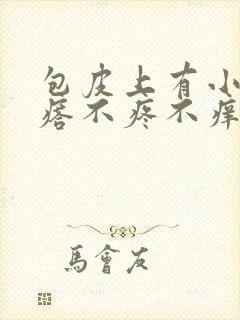 包皮上有小
痞不疼不痒
馬會友